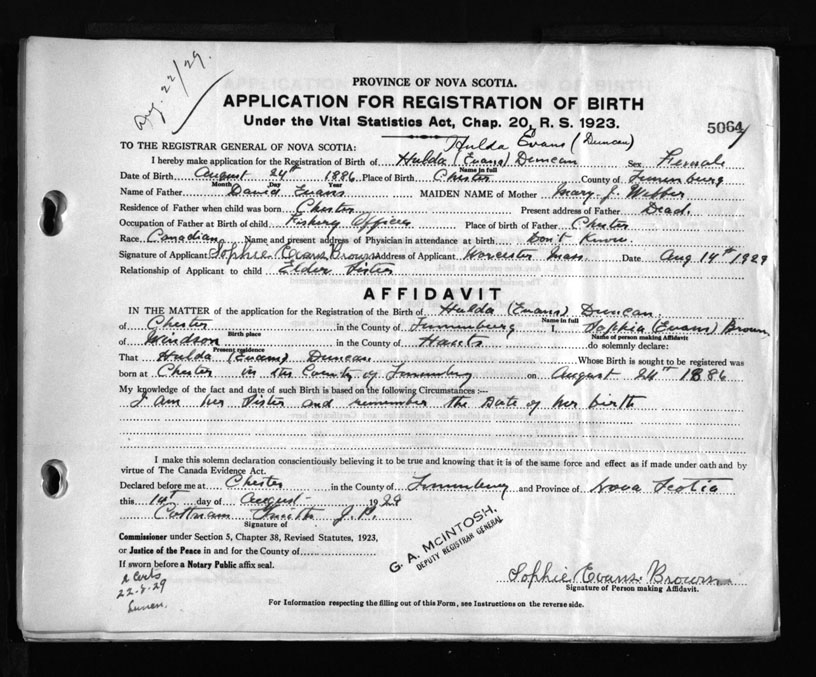 Aug. 22/29.
PROVINCE OF NOVA SCOTIA.
APPLICATION FOR REGISTRATION OF BIRTH
Under the Vital Statistics Act, Chap. 20, R. S. 1923.
5064
Hulda Evans (Duncan)
TO THE REGISTRAR GENERAL OF NOVA SCOTIA:
I hereby make application for the Registration of Birth of Hulda (Evans) Duncan Sex Female
Name in full
Date of Birth August 24th 1886 Place of Birth Chester County of Lunenburg
Month Day Year
Name of Father David Evans MAIDEN NAME of Mother Mary J. Webber
Residence of Father when child was born Chester Present address of Father Dead.
Occupation of Father at Birth of child Fishery Officer Place of birth of Father Chester
Race Canadian Name and present address of Physician in attendance at birth Don't Know
Signature of Applicant Sophie Evans Brown Address of Applicant Worcester Mass. Date Aug 14th 1929
Relationship of Applicant to child Elder Sister
AFFIDAVIT
IN THE MATTER of the application for the Registration of the Birth of Hulda (Evans) Duncan
Name in full
of Chester in the County of Lunenburg I, Sophia (Evans) Brown
Birth place Name of person making Affidavit
of Windsor in the County of Hants do solemnly declare:
Present residence
That Hulda (Evans) Duncan Whose Birth is sought to be registered was
born at Chester in the County of Lunenburg on August 24th 1886
My knowledge of the fact and date of such Birth is based on the following Circumstances :—
I am her Sister and remember the Date of her birth
I make this solemn declaration conscientiously believing it to be true and knowing that it is of the same force and effect as if made under oath and by
virtue of The Canada Evidence Act.
Declared before me at Chester in the County of Lunenburg and Province of Nova Scotia
this 14th day of August 1929
Cottnam Smith J. P.
Signature of
Commissioner under Section 5, Chapter 38, Revised Statutes, 1923,
or Justice of the Peace in and for the County of
If sworn before a Notary Public affix seal.
G. A. McINTOSH,
DEPUTY REGISTRAR GENERAL
Sophie Evans Brown
Signature of Person making Affidavit.
22-8-29
For Information respecting the filling out of this Form, see Instructions on the reverse side.